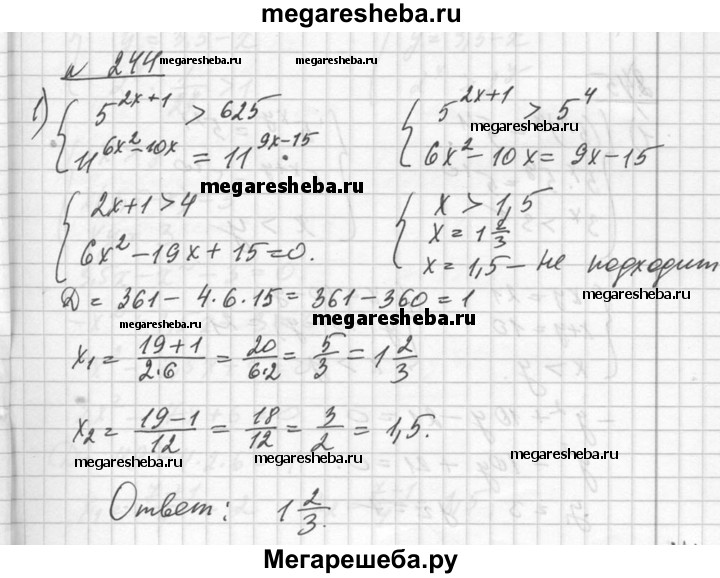 megaresheba.ru
№ 244 megaresheba.ru megaresheba.ru
1) { 5^{2x+1} > 625 { 5^{2x+1} > 5^4
megaresheba.ru
11^{6x²-10x} = 11^{9x-15} 6x² - 10x = 9x - 15
megaresheba.ru
{ 2x+1 > 4 { x > 1,5
x = 1 2/3
6x² - 19x + 15 = 0. x = 1,5 – не подходит
Д = 361 - 4·6·15 = 361 - 360 = 1 megaresheba.ru
megaresheba.ru megaresheba.ru
x₁ = (19+1)/(2·6) = 20/(6·2) = 5/3 = 1 2/3
x₂ = (19-1)/12 = 18/12 = 3/2 = 1,5.
megaresheba.ru megaresheba.ru megaresheba.ru
Ответ: 1 2/3.
Мегарешеба.ру